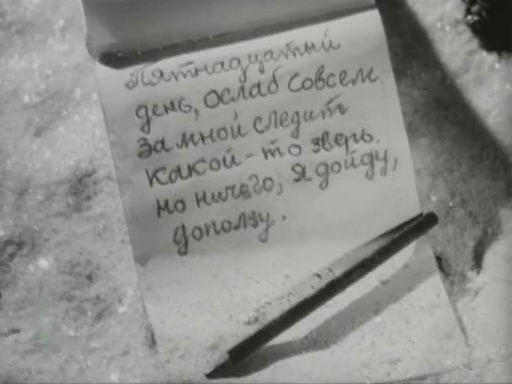 Пятнадцатый
день, ослаб совсем
за мной следить
какой-то зверь.
но ничего, я дойду,
доползу.